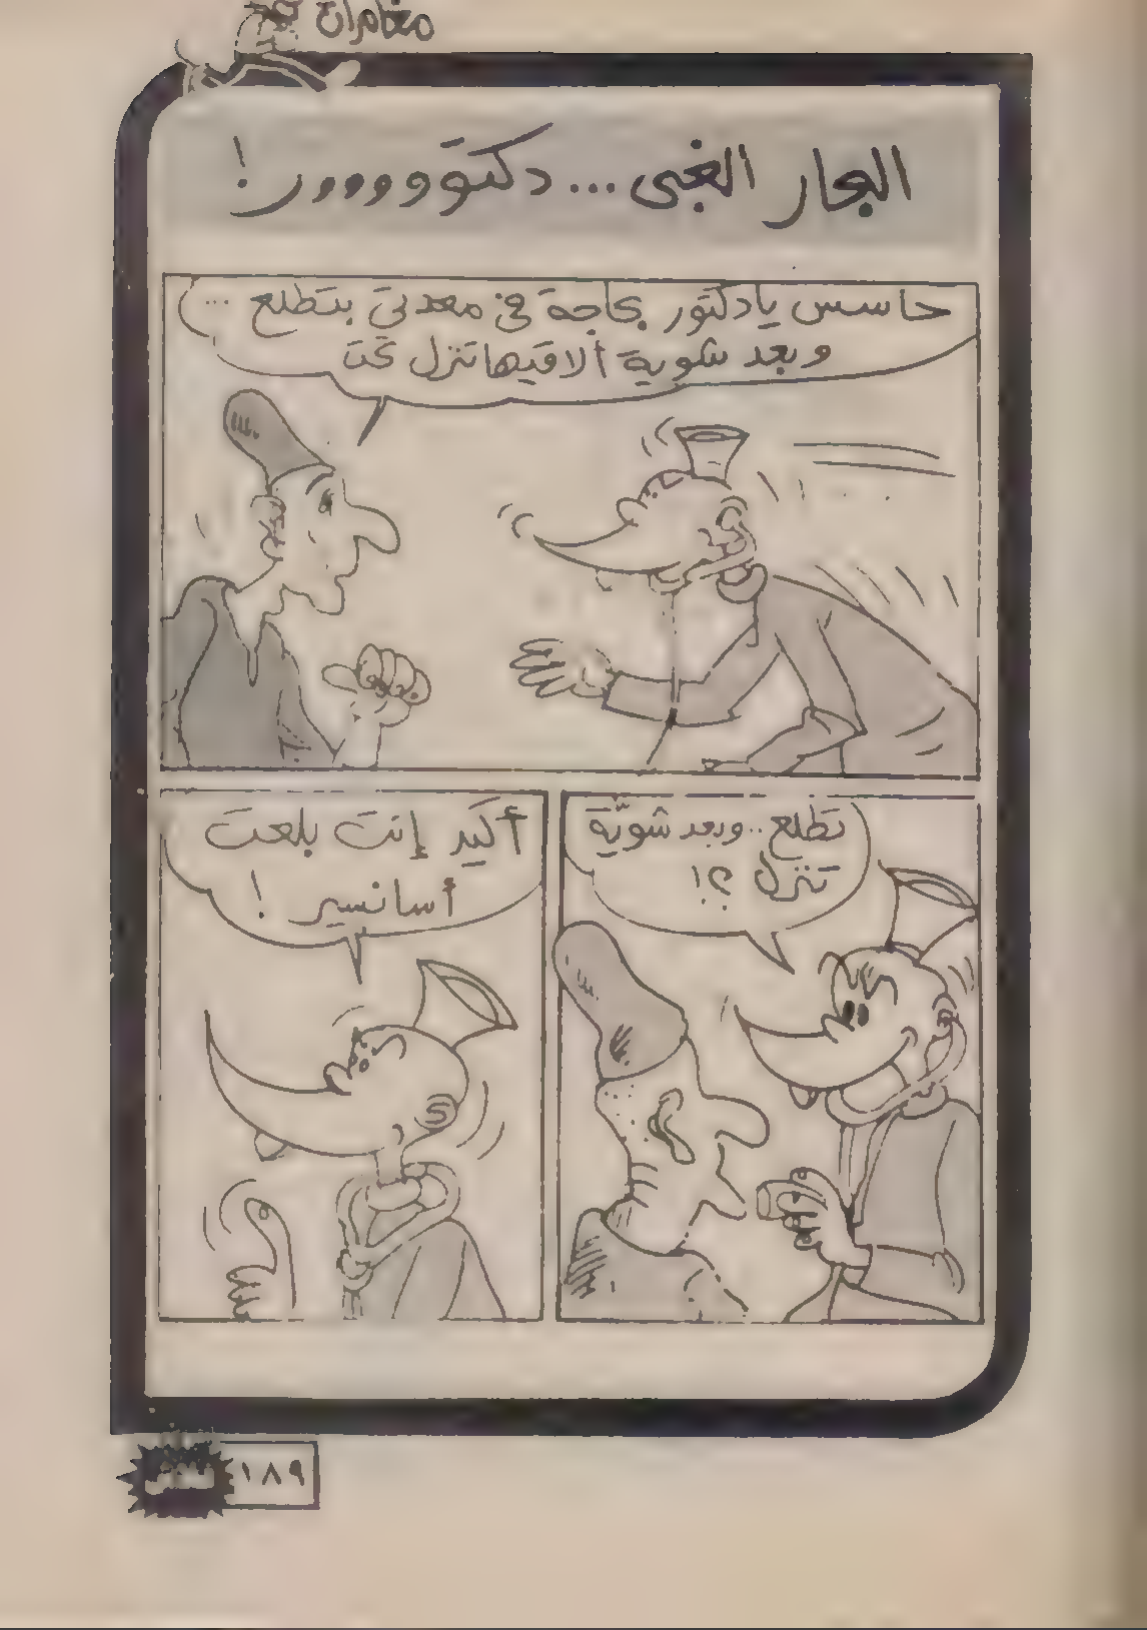 مغامرات
البحار الغبى ... دكتوووور !
حاسس يا دكتور بحاجة فى معدتى بتطلع ...
وبعد شوية ألاقيها تنزل تحت
تطلع .. وبعد شويّة
تنزل ؟!
أكيد إنت بلعت
أسانسير !
١٨٩